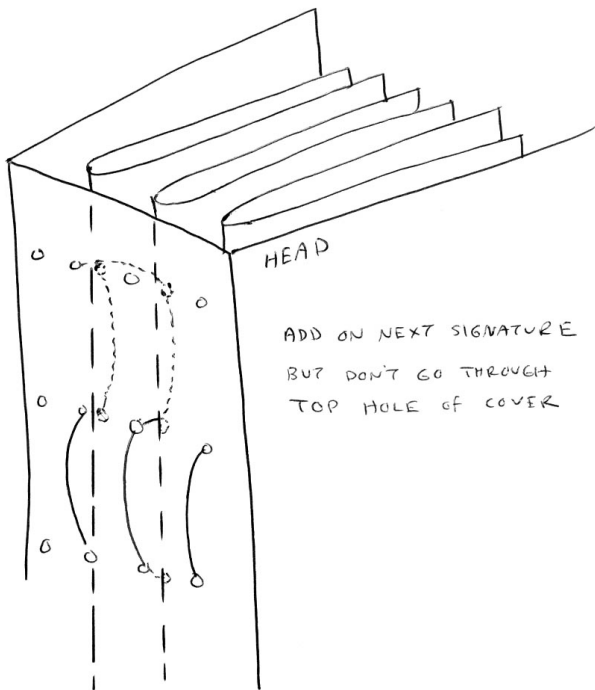 HEAD
ADD ON NEXT SIGNATURE
BUT DON'T GO THROUGH
TOP HOLE of COVER